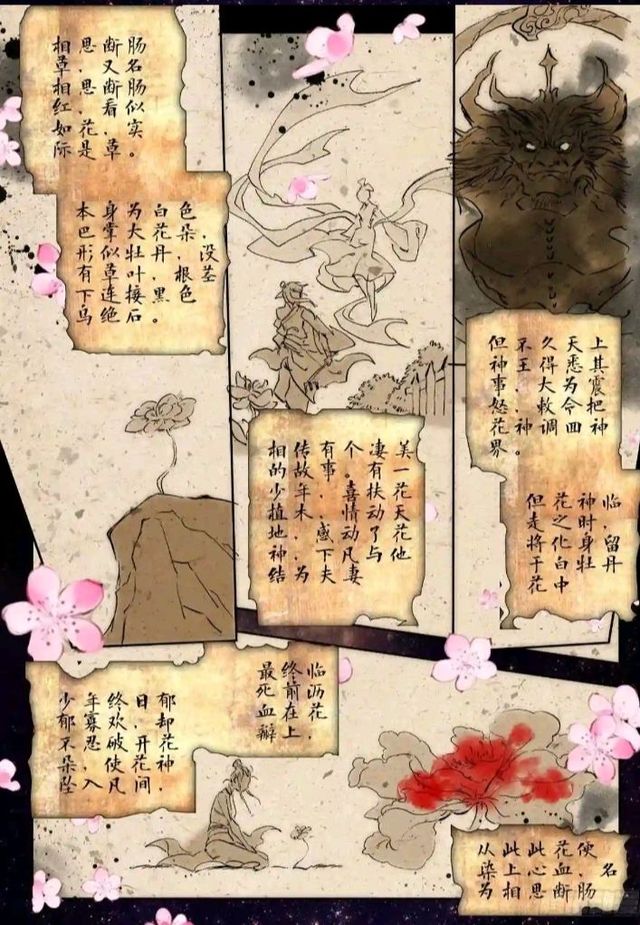 相思断肠
草,又名
相思断肠
红,看似
如花,实
际是草。
本身为白色,
巴掌大花朵,
形似牡丹,没
有草叶,根茎
下连接黑色
乌绝后。
相传有个凄美
的故事。有一
少年,喜扶花
植木,情动天
地,感动了花
神下凡与他
结为夫妻
但不久天上
神王得悉其
事,大为震
怒,救令把
花神调回神
界。
但花神临,
走之时留
将化身丹
于白牡
花中
少年终日郁
郁寡欢,却
不忍破开花
朵,使花神,
坠入凡间
最终临
死前沥
血在花,
瓣上
从此此花便
染上心血,名
为相思断肠